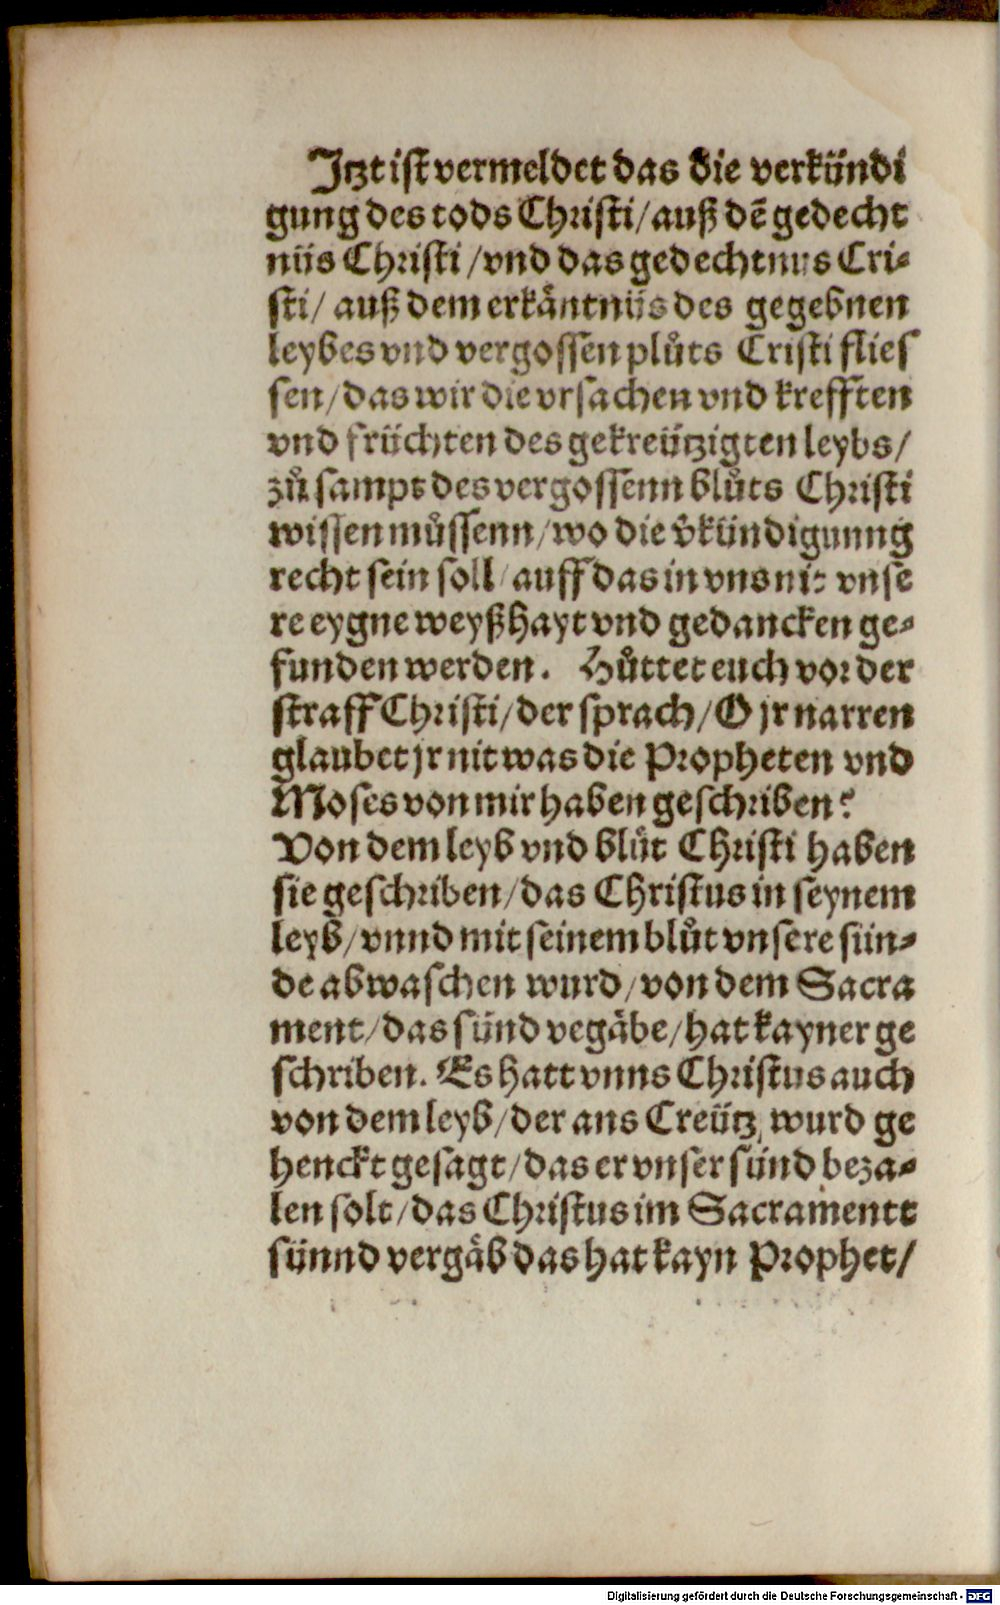 Jtzt ist vermeldet das die verkündi
gung des tods Christi/ auß dē gedecht
nüs Christi/ vnd das gedechtnus Cri-
sti/ auß dem erkäntnüs des gegebnen
leybes vnd vergossen plůts Cristi flies
sen/ das wir die vrsachen vnd krefften
vnd früchten des gekreützigten leybs/
zů sampt des vergossenn blůts Christi
wissen můssenn/ wo die v̈kündigunng
recht sein soll/ auff das in vns nit vnse
re eygne weyßhayt vnd gedancken ge-
funden werden. Hůttet euch vor der
straff Christi/ der sprach/ O jr narren
glaubet jr nit was die Propheten vnd
Moses von mir haben geschriben?
Von dem leyb vnd blůt Christi haben
sie geschriben/ das Christus in seynem
leyb/ vnnd mit seinem blůt vnsere sün-
de abwaschen wurd/ von dem Sacra
ment/ das sünd vegäbe/ hat kayner ge
schriben. Es hatt vnns Christus auch
von dem leyb/ der ans Creütz wurd ge
henckt gesagt/ das er vnser sünd beza-
len solt/ das Christus im Sacramentt
sünnd vergäb das hat kayn Prophet/
Digitalisierung gefördert durch die Deutsche Forschungsgemeinschaft - DFG